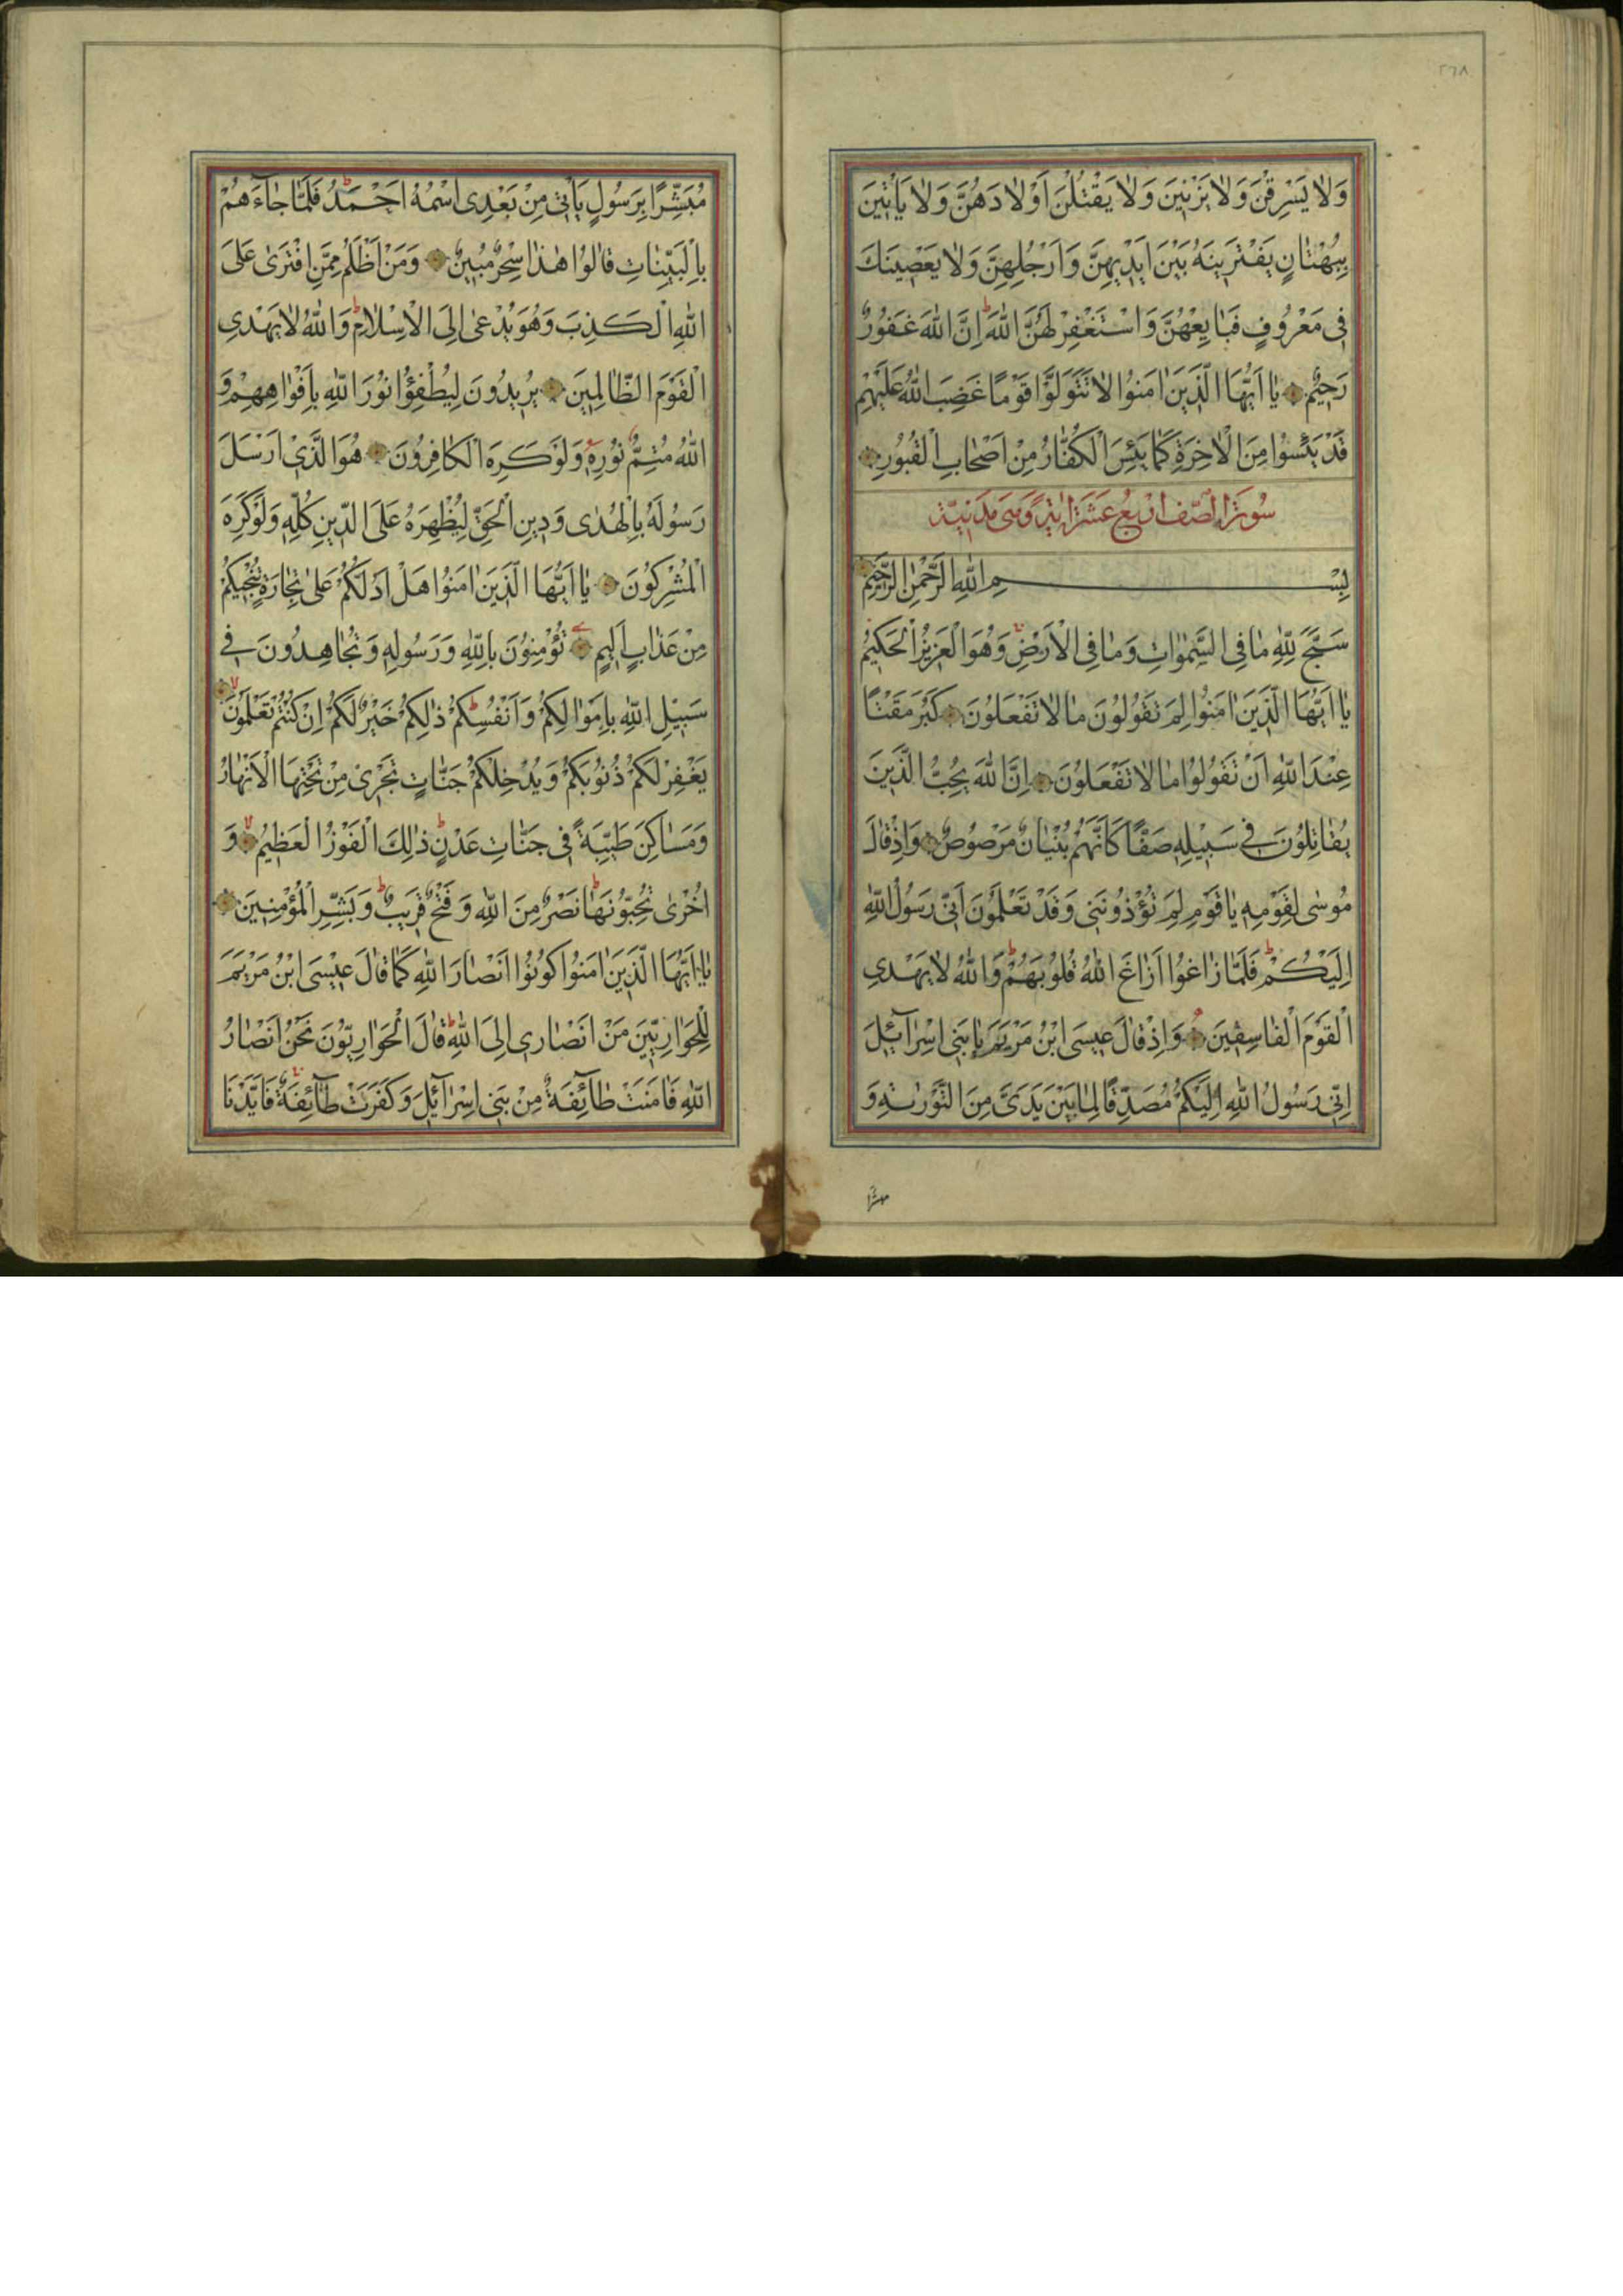 ٢٦٨
وَلَا يَسْرِقْنَ وَلَا يَزْنِينَ وَلَا يَقْتُلْنَ اَوْلَادَهُنَّ وَلَا يَأْتِينَ
بِبُهْتَانٍ يَفْتَرِينَهُ بَيْنَ اَيْدِيهِنَّ وَاَرْجُلِهِنَّ وَلَا يَعْصِينَكَ
فِي مَعْرُوفٍ فَبَايِعْهُنَّ وَاسْتَغْفِرْ لَهُنَّ اللّٰهَ اِنَّ اللّٰهَ غَفُورٌ
رَحِيمٌ يَا اَيُّهَا الَّذِينَ اٰمَنُوا لَا تَتَوَلَّوْا قَوْمًا غَضِبَ اللّٰهُ عَلَيْهِمْ
قَدْ يَئِسُوا مِنَ الْاٰخِرَةِ كَمَا يَئِسَ الْكُفَّارُ مِنْ اَصْحَابِ الْقُبُورِ
سُورَةُ الصَّف اَرْبَعُ عَشَرَ اٰيَةً وَهِيَ مَدَنِيَّة
بِسْمِ اللّٰهِ الرَّحْمٰنِ الرَّحِيمِ
سَبَّحَ لِلّٰهِ مَا فِي السَّمٰوَاتِ وَمَا فِي الْاَرْضِ وَهُوَ الْعَزِيزُ الْحَكِيمُ
يَا اَيُّهَا الَّذِينَ اٰمَنُوا لِمَ تَقُولُونَ مَا لَا تَفْعَلُونَ كَبُرَ مَقْتًا
عِنْدَ اللّٰهِ اَنْ تَقُولُوا مَا لَا تَفْعَلُونَ اِنَّ اللّٰهَ يُحِبُّ الَّذِينَ
يُقَاتِلُونَ فِي سَبِيلِهِ صَفًّا كَاَنَّهُمْ بُنْيَانٌ مَرْصُوصٌ وَاِذْ قَالَ
مُوسٰى لِقَوْمِهِ يَا قَوْمِ لِمَ تُؤْذُونَنِي وَقَدْ تَعْلَمُونَ اَنِّي رَسُولُ اللّٰهِ
اِلَيْكُمْ فَلَمَّا زَاغُوا اَزَاغَ اللّٰهُ قُلُوبَهُمْ وَاللّٰهُ لَا يَهْدِي
الْقَوْمَ الْفَاسِقِينَ وَاِذْ قَالَ عِيسَى ابْنُ مَرْيَمَ يَا بَنِي اِسْرَآئِلَ
اِنِّي رَسُولُ اللّٰهِ اِلَيْكُمْ مُصَدِّقًا لِمَا بَيْنَ يَدَيَّ مِنَ التَّوْرٰيةِ وَ
مبشرا
مُبَشِّرًا بِرَسُولٍ يَأْتِي مِنْ بَعْدِي اسْمُهُ اَحْمَدُ فَلَمَّا جَآءَهُمْ
بِالْبَيِّنَاتِ قَالُوا هٰذَا سِحْرٌ مُبِينٌ وَمَنْ اَظْلَمُ مِمَّنِ افْتَرٰى عَلَى
اللّٰهِ الْكَذِبَ وَهُوَ يُدْعٰى اِلَى الْاِسْلَامِ وَاللّٰهُ لَا يَهْدِي
الْقَوْمَ الظَّالِمِينَ يُرِيدُونَ لِيُطْفِؤُا نُورَ اللّٰهِ بِاَفْوَاهِهِمْ وَ
اللّٰهُ مُتِمُّ نُورِهِ وَلَوْ كَرِهَ الْكَافِرُونَ هُوَ الَّذِي اَرْسَلَ
رَسُولَهُ بِالْهُدٰى وَدِينِ الْحَقِّ لِيُظْهِرَهُ عَلَى الدِّينِ كُلِّهِ وَلَوْ كَرِهَ
الْمُشْرِكُونَ يَا اَيُّهَا الَّذِينَ اٰمَنُوا هَلْ اَدُلُّكُمْ عَلٰى تِجَارَةٍ تُنْجِيكُمْ
مِنْ عَذَابٍ اَلِيمٍ تُؤْمِنُونَ بِاللّٰهِ وَرَسُولِهِ وَتُجَاهِدُونَ فِي
سَبِيلِ اللّٰهِ بِاَمْوَالِكُمْ وَاَنْفُسِكُمْ ذٰلِكُمْ خَيْرٌ لَكُمْ اِنْ كُنْتُمْ تَعْلَمُونَ
يَغْفِرْ لَكُمْ ذُنُوبَكُمْ وَيُدْخِلْكُمْ جَنَّاتٍ تَجْرِي مِنْ تَحْتِهَا الْاَنْهَارُ
وَمَسَاكِنَ طَيِّبَةً فِي جَنَّاتِ عَدْنٍ ذٰلِكَ الْفَوْزُ الْعَظِيمُ وَ
اُخْرٰى تُحِبُّونَهَا نَصْرٌ مِنَ اللّٰهِ وَفَتْحٌ قَرِيبٌ وَبَشِّرِ الْمُؤْمِنِينَ
يَا اَيُّهَا الَّذِينَ اٰمَنُوا كُونُوا اَنْصَارَ اللّٰهِ كَمَا قَالَ عِيسَى ابْنُ مَرْيَمَ
لِلْحَوَارِيِّينَ مَنْ اَنْصَارِي اِلَى اللّٰهِ قَالَ الْحَوَارِيُّونَ نَحْنُ اَنْصَارُ
اللّٰهِ فَاٰمَنَتْ طَآئِفَةٌ مِنْ بَنِي اِسْرَآئِلَ وَكَفَرَتْ طَآئِفَةٌ فَاَيَّدْنَا